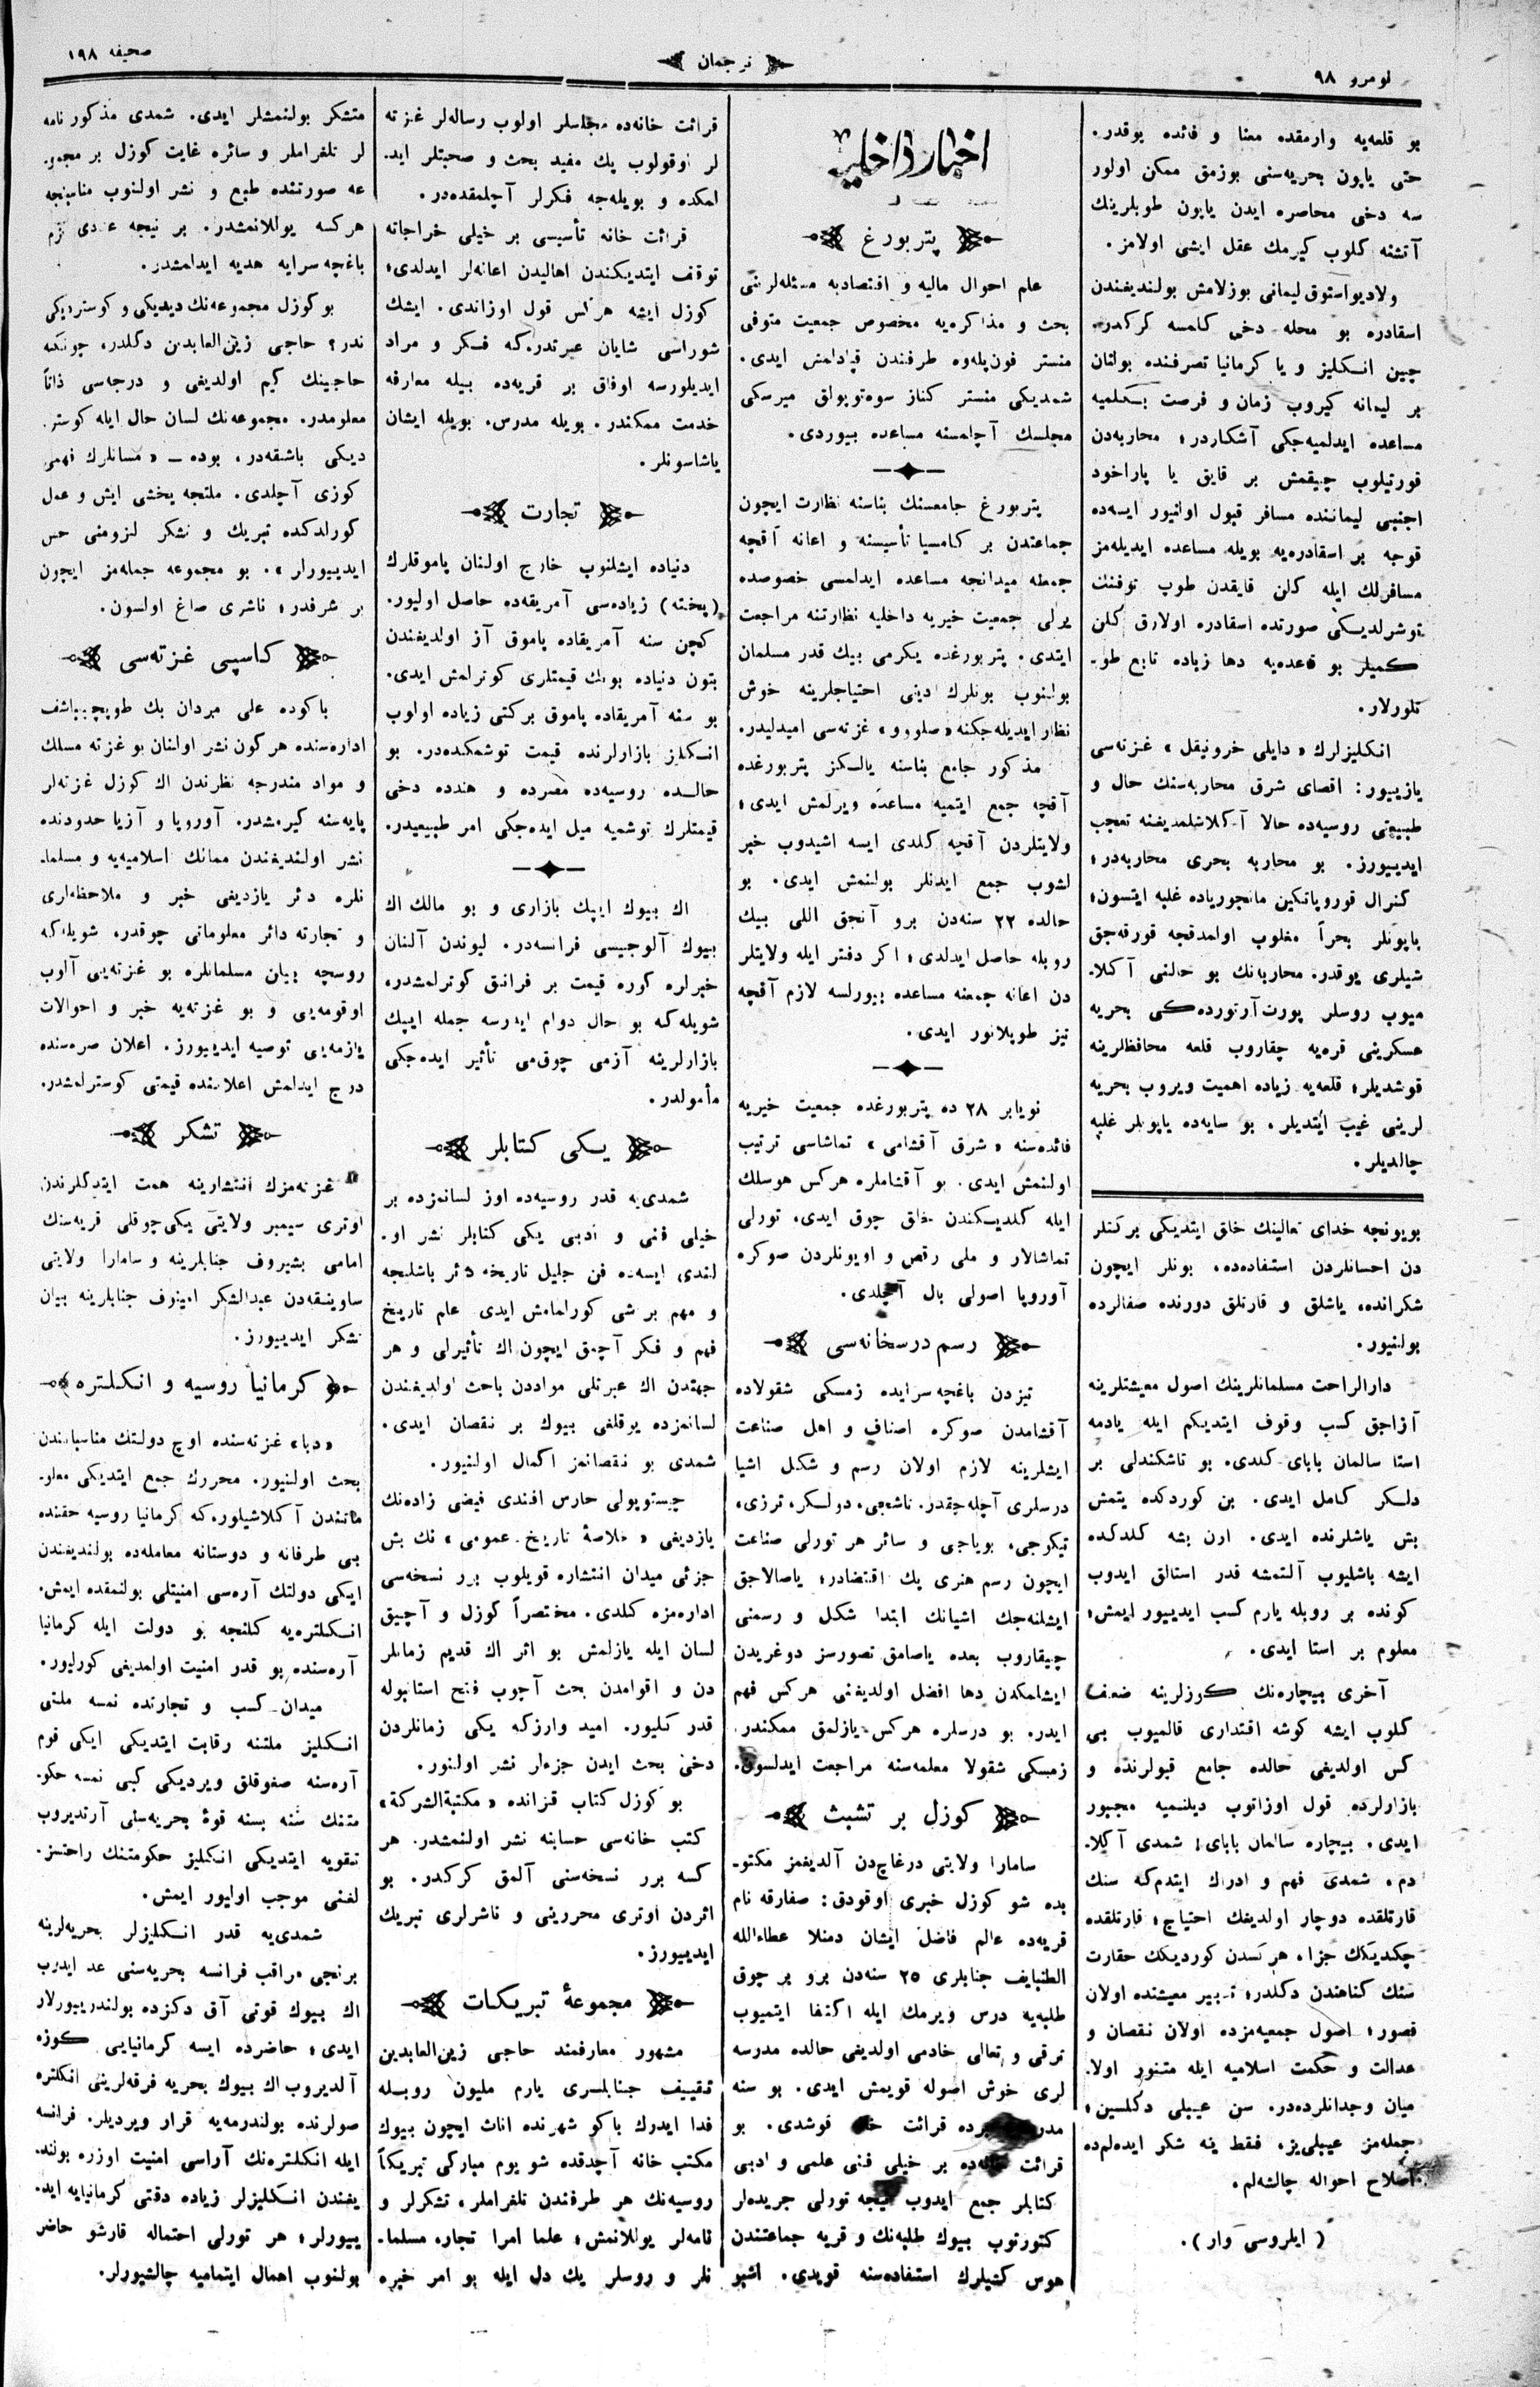 لومرو ٩٨
ترجمان
صحیفه ١٩٨
بو قلعه‌یه وارمقده معنا و فائده یوقدر.
حتی یاپون بحریه‌سنی بوزمق ممکن اولور
سه دخی محاصره ایدن یاپون طوپلرینك
آتشنه کلوب کیرمك عقل ایشی اولامز.
ولادیواستوق لیمانی بوزلامش بولندیغندن
اسقادره بو محله دخی کلمسه کرکدر.
چین انکلیز و یا کرمانیا تصرفنده بولنان
بر لیمانه کیروب زمان و فرصت بکلمیه
مساعده ایدلمیه‌جکی آشکاردر؛ محاربه‌دن
قورتیلوب چیقمش بر قایق یا پاراخود
اجنبی لیماننده مسافر قبول اولنیور ایسه‌ده
قوجه بر اسقادره‌یه بویله مساعده ایدیله‌مز
مسافرلك ایله کلن قایقدن طوپ توفنك
توشرلدیکی صورتده اسقادره اولارق کلن
کمیلر بو قاعده‌یه دها زیاده تابع طو۔
تلورلار.
انکلیزلرك «دایلی خرونیقل» غزته‌سی
یازییور: اقصای شرق محاربه‌سنك حال و
طبیعتی روسیه‌ده حالا آکلاشلمدیغنه تعجب
ایدییورز. بو محاربه بحری محاربه‌در؛
کنرال قوروپاتکین مانجوریاده غلبه ایتسون؛
یاپونلر بحراً مغلوب اولمدقجه قورقه‌جق
شیلری یوقدر. محاربه‌نك بو حالنی آکلا۔
میوب روسلر پورت آرتورده‌کی بحریه
عسکرینی قره‌یه چقاروب قلعه محافظلرینه
قوشدیلر؛ قلعه‌یه زیاده اهمیت ویروب بحریه
لرینی غیب ایتدیلر. بو سایه‌ده یاپونلر غلبه
چالدیلر.
بویونجه خدای تعالینك خلق ایتدیکی برکتلر
دن احسانلردن استفاده‌ده، بونلر ایچون
شکرانده، یاشلق و قارتلق دورنده صفالرده
بولنیور.
دارالراحت مسلمانلرینك اصول معیشتلرینه
آزاجق کسب وقوف ایتدیکم ایله یادمه
استا سالمان بابای کلدی. بو تاشکندلی بر
دلکر کامل ایدی. بن کوردکده یتمش
بش یاشلرنده ایدی. اون بشه کلدکده
ایشه باشلیوب آلتمشه قدر استالق ایدوب
کونده بر روبله یارم کسب ایدییور ایمش؛
معلوم بر استا ایدی.
آخری بیچاره‌نك کوزلرینه ضعف
کلوب ایشه کوشه اقتداری قالمیوب بی
کس اولدیغی حالده جامع قپولرنده و
بازارلرده قول اوزاتوب دیلنمیه مجبور
ایدی. بیچاره سالمان بابای؛ شمدی آکلا۔
دم. شمدی فهم و ادراك ایتدم‌که سنك
قارتلقده دوچار اولدیغك احتیاج؛ قارتلقده
چکدیکك جزا، هر کسدن کوردیکك حقارت
سنك کناهندن دکلدر؛ تدبیر معیشتده اولان
قصور؛ اصول جمعیه‌مزده اولان نقصان و
عدالت و حکمت اسلامیه ایله متنور اولا۔
میان وجدانلرده‌در. سن عیبلی دکلسین؛
جمله‌مز عیبلی‌یز. فقط ینه شکر ایده‌لم‌ده
اصلاح احواله چالشه‌لم.
(ایلروسی وار).
اخبار داخلیه
پتربورغ
علم احوال مالیه و اقتصادیه مسئله‌لرینی
بحث و مذاکره‌یه مخصوص جمعیت متوفی
منستر فون‌پله‌وه طرفندن قپادلمش ایدی.
شمدیکی منستر کناز سوه‌توپولق میرسکی
مجلسك آچلمسنه مساعده بیوردی.
پتربورغ جامعسنك بناسنه نظارت ایچون
جماعتدن بر کامسیا تأسیسنه و اعانه آقچه
جمعنه میدانجه مساعده ایدلمسی خصوصده
یرلی جمعیت خیریه داخلیه نظارتنه مراجعت
ایتدی. پتربورغده یکرمی بیك قدر مسلمان
بولنوب بونلرك دینی احتیاجلرینه خوش
نظار ایدیله‌جکنه «صلووو» غزته‌سی امیدلیدر.
مذکور جامع بناسنه یالکز پتربورغده
آقچه جمع ایتمیه مساعده ویرلمش ایدی؛
ولایتلردن آقچه کلدی ایسه اشیدوب خبر
لشوب جمع ایدنلر بولنمش ایدی. بو
حالده ٢٢ سنه‌دن برو آنجق اللی بیك
روبله حاصل ایدلدی؛ اکر دفتر ایله ولایتلر
دن اعانه جمعنه مساعده بیورلسه لازم آقچه
تیز طوپلانور ایدی.
نویابر ٢٨ ده پتربورغده جمعیت خیریه
فائده‌سنه «شرق آقشامی» تماشاسی ترتیب
اولنمش ایدی. بو آقشاملره هرکس هوسلك
ایله کلدیکندن خلق چوق ایدی. تورلی
تماشالار و ملی رقص و اویونلردن صوکره
آوروپا اصولی بال آچلدی.
رسم درسخانه‌سی
تیزدن باغچه‌سرایده زمسکی شقولاده
آقشامدن صوکره اصناف و اهل صناعت
ایشلرینه لازم اولان رسم و شکل اشیا
درسلری آچله‌جقدر. تاشجی، دولکر، ترزی،
تیکوجی، بویاجی و سائر هر تورلی صناعت
ایچون رسم هنری پك اقتضادر؛ یاصالاجق
ایشلنه‌جك اشیانك ابتدا شکل و رسمنی
چیقاروب بعده یاصامق تصورسز دوغریدن
ایشلمکدن دها افضل اولدیغنی هرکس فهم
ایدر. بو درسلره هرکس یازلمق ممکندر.
زمسکی شقولا معلمه‌سنه مراجعت ایدلسون.
کوزل بر تشبث
سامارا ولایتی درغاچ‌دن آلدیغمز مکتو۔
بده شو کوزل خبری اوقودق: صفارقه نام
قریه‌ده عالم فاضل ایشان دمنلا عطاءالله
الطنبایف جنابلری ٢٥ سنه‌دن برو بر چوق
طلبه‌یه درس ویرمك ایله اکتفا ایتمیوب
ترقی و تعالی خادمی اولدیغی حالده مدرسه
لری خوش اصوله قویمش ایدی. بو سنه
قرائت قوشدی. بو
قرائت بر خیلی فنی علمی و ادبی
کتابلر جمع ایدوب نیجه تورلی جریده‌لر
کتورتوب بیوك طلبه‌نك و قریه جماعتندن
هوس کشیلرك استفاده‌سنه قویدی. اشبو
قرائت خانه‌ده مجلسلر اولوب رساله‌لر غزته
لر اوقولوب پك مفید بحث و صحبتلر اید۔
لمکده و بویله‌جه فکرلر آچلمقده‌در.
قرائت خانه تأسیسی بر خیلی خراجاته
توقف ایتدیکندن اهالیدن اعانه‌لر ایدلدی؛
کوزل ایشه هرکس قول اوزاندی. ایشك
شوراسی شایان عبرتدرکه فکر و مراد
ایدیلورسه اوفاق بر قریه‌ده بیله معارفه
خدمت ممکندر. بویله مدرس، بویله ایشان
یاشاسونلر.
تجارت
دنیاده ایشلنوب خارج اولنان پاموقلرك
(پخته) زیاده‌سی آمریقه‌ده حاصل اولیور.
کچن سنه آمریقاده پاموق آز اولدیغندن
بتون دنیاده بونك قیمتلری کوترلمش ایدی.
بو سنه آمریقاده پاموق برکتی زیاده اولوب
انکلیز بازارلرنده قیمت توشمکده‌در. بو
حالده روسیه‌ده مصرده و هندده دخی
قیمتلرك توشمیه میل ایده‌جکی امر طبیعیدر.
اك بیوك ایپك بازاری و بو مالك اك
بیوك آلوجیسی فرانسه‌در. لیوندن آلنان
خبرلره کوره قیمت بر فرانق کوترلمشدر،
شویله‌که بو حال دوام ایدرسه جمله ایپك
بازارلرینه آزمی چوق‌می تأثیر ایده‌جکی
مأمولدر.
یکی کتابلر
شمدی‌یه قدر روسیه‌ده اوز لسانمزده بر
خیلی فنی و ادبی یکی کتابلر نشر او۔
لندی ایسه‌ده فن جلیل تاریخه دئر باشلیجه
و مهم بر شی کورلمامش ایدی علم تاریخ
فهم و فکر آچمق ایچون اك تأثیرلی و هر
جهتدن اك عبرتلی مواددن باحث اولدیغندن
لسانمزده یوقلغی بیوك بر نقصان ایدی.
شمدی بو نقصانمز اکمال اولنیور.
چیستوپولی حارس افندی فیضی زاده‌نك
یازدیغی «خلاصهٔ تاریخ عمومی» نك بش
جزئی میدان انتشاره قویلوب برر نسخه‌سی
اداره‌مزه کلدی. مختصراً کوزل و آچیق
لسان ایله یازلمش بو اثر اك قدیم زمانلر
دن و اقوامدن بحث آچوب فتح استانبوله
قدر کلیور. امید وارزکه یکی زمانلردن
دخی بحث ایدن جزءلر نشر اولنور.
بو کوزل کتاب قزانده «مکتبةالشرکة»
کتب خانه‌سی حسابنه نشر اولنمشدر. هر
کسه برر نسخه‌سنی آلمق کرکدر. بو
اثردن اوتری محررینی و ناشرلری تبریك
ایدییورز.
مجموعهٔ تبریکات
مشهور معارفمند حاجی زین‌العابدین
تقییف جنابلری یارم ملیون روبله
فدا ایدرك باکو شهرنده اناث ایچون بیوك
مکتب خانه آچدقده شو یوم مبارکی تبریکاً
روسیه‌نك هر طرفندن تلغراملر، تشکرلر و
نامه‌لر یوللانمش؛ علما امرا تجار، مسلما۔
نلر و روسلر یك دل ایله بو امر خیره
متشکر بولنمشلر ایدی. شمدی مذکور نامه
لر تلغراملر و سائره غایت کوزل بر مجمو۔
عه صورتنده طبع و نشر اولنوب مناسبنجه
هرکسه یوللانمشدر. بر نیجه عددی
باغچه سرایه هدیه ایدلمشدر.
بو کوزل مجموعه‌نك دیدیکی و کوستردیکی
ندر؟ حاجی زین‌العابدین دکلدر، چونکه
حاجینك کیم اولدیغی و درجه‌سی ذاتاً
معلومدر. مجموعه‌نك لسان حال ایله کوستر۔
دیکی باشقه‌در، بوده — «مسلمانلرك فهمی
کوزی آچلدی. ملتجه یخشی ایش و عمل
کورلدکده تبریك و تشکر لزومنی حس
ایدییورلر». بو مجموعه جمله‌مز ایچون
بر شرفدر؛ ناشری صاغ اولسون.
کاسپی غزته‌سی
باکوده علی مردان بك طوپچیباشف
اداره‌سنده هر کون نشر اولنان بو غزته مسلك
و مواد مندرجه نظرندن اك کوزل غزته‌لر
پایه‌سنه کیرمشدر. آوروپا و آزیا حدودنده
نشر اولندیغندن ممالك اسلامیه‌یه و مسلما۔
نلره دئر یازدیغی خبر و ملاحظه‌لری
و تجارته دائر معلوماتی چوقدر، شویله‌که
روسچه بیلن مسلمانلره بو غزته‌یی آلوب
اوقومه‌یی و بو غزته‌یه خبر و احوالات
یازمه‌یی توصیه ایدییورز. اعلان صره‌سنده
درج ایدلمش اعلاننده قیمتی کوسترلمشدر.
تشکر
غزته‌مزك انتشارینه همت ایتدکلرندن
اوتری سیمبر ولایتی یکی‌چوقلی قریه‌سنك
امامی بشیروف جنابلرینه و سامارا ولایتی
ساوینقه‌دن عبدالشکر امینوف جنابلرینه بیان
تشکر ایدییورز.
کرمانیا روسیه و انکلتره
«دبا» غزته‌سنده اوچ دولتك مناسباتندن
بحث اولنیور. محررك جمع ایتدیکی معلو۔
ماتندن آکلاشیلورکه کرمانیا روسیه حقنده
بی طرفانه و دوستانه معامله‌ده بولندیغندن
ایکی دولتك آره‌سی امنیتلی بولنمقده ایمش.
انکلتره‌یه کلنجه بو دولت ایله کرمانیا
آره‌سنده بو قدر امنیت اولمدیغی کورلیور.
میدان کسب و تجارتده نمسه ملتی
انکلیز ملتنه رقابت ایتدیکی ایکی قوم
آره‌سنه صغوقلق ویردیکی کبی نمسه حکو۔
متنك سنه بسنه قوهٔ بحریه‌سنی آرتدیروب
تقویه ایتدیکی انکلیز حکومتنك راحتسز۔
لغنی موجب اولیور ایمش.
شمدی‌یه قدر انکلیزلر بحریه‌لرینه
برنجی مراقب فرانسه بحریه‌سنی عد ایدرب
اك بیوك قوتی آق دکزده بولندرییورلار
ایدی؛ حاضرده ایسه کرمانیایی کوزه
آلدیروب اك بیوك بحریه فرقه‌لرینی انکلتره
صولرنده بولندرمه‌یه قرار ویردیلر. فرانسه
ایله انکلتره‌نك آراسی امنیت اوزره بولند۔
یغندن انکلیزلر زیاده دقتی کرمانیایه اید۔
ییورلر؛ هر تورلی احتماله قارشو حاضر
بولنوب اهمال ایتمامیه چالشیورلر.